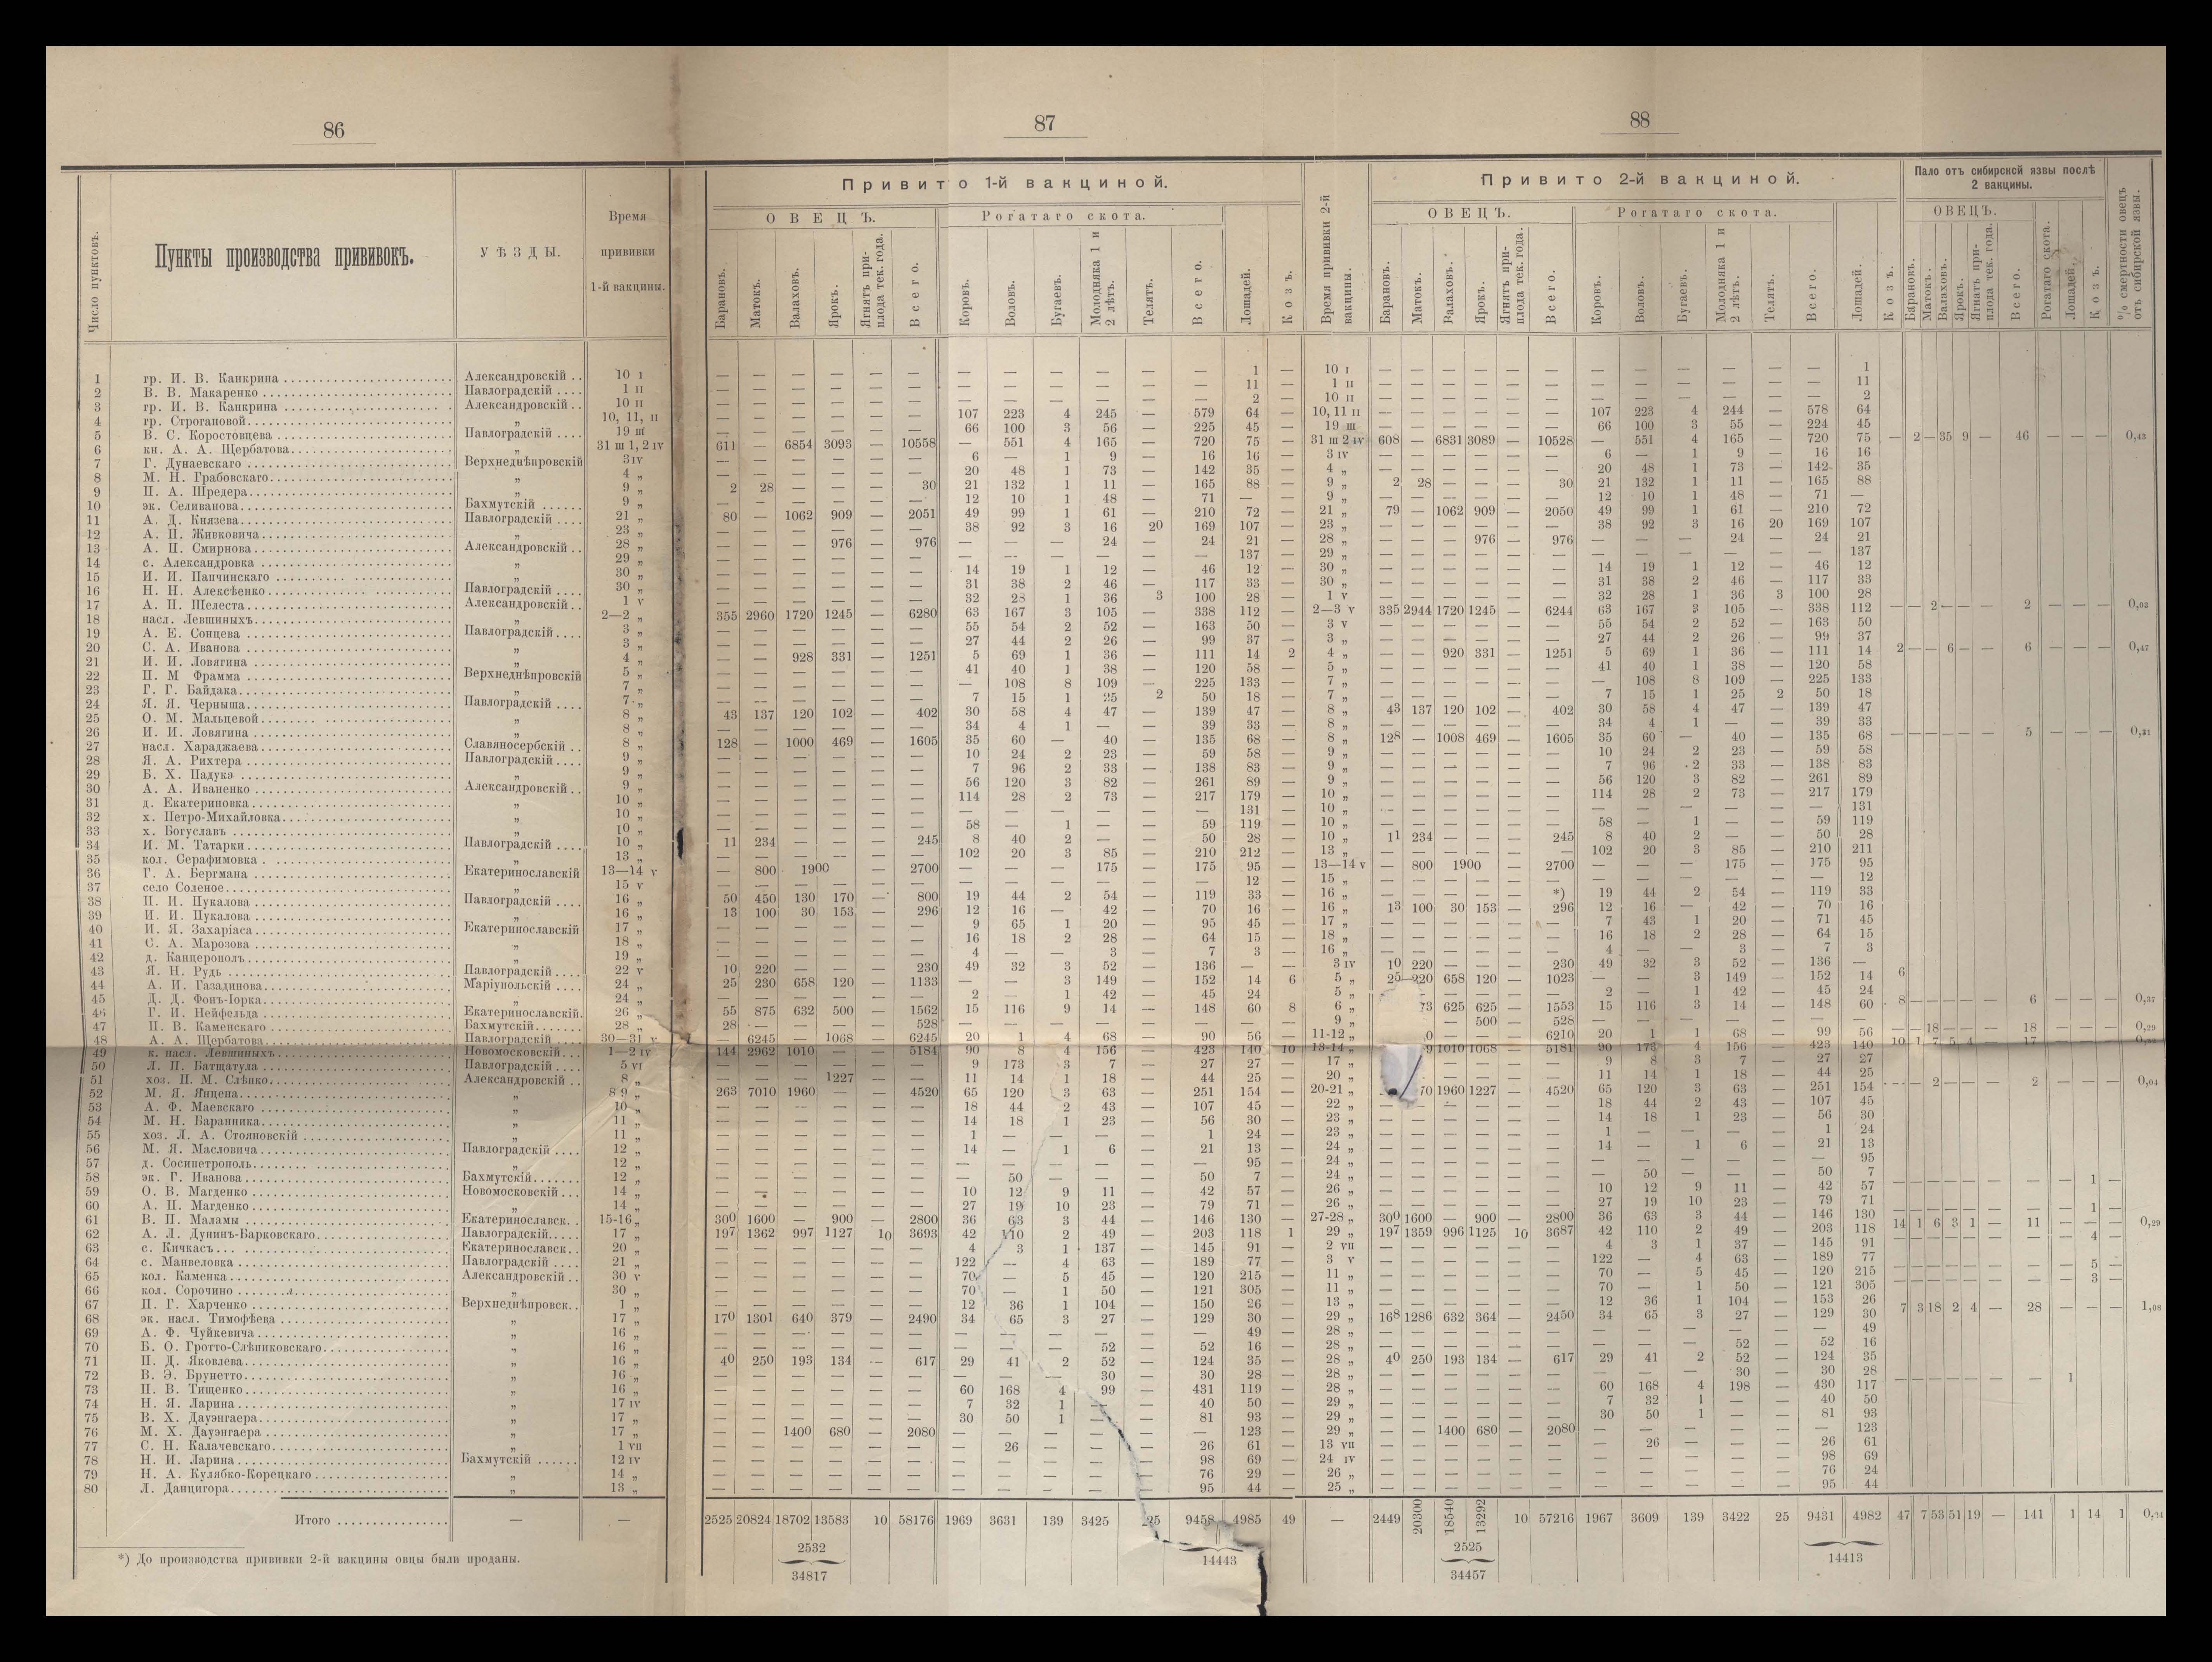 86
87
88
Число пунктовъ.
Пункты производства прививокъ.
УѢЗДЫ.
Время прививки 1-й вакцины.
Привито 1-й вакциной.
ОВЕЦЪ.
Рогатаго скота.
Барановъ. Матокъ. Валаховъ. Ярокъ. Ягнятъ приплода тек. года. Всего.
Коровъ. Воловъ. Бугаевъ. Молодняка 1 и 2 лѣтъ. Телятъ. Всего. Лошадей. Козъ.
Время прививки 2-й вакцины.
Привито 2-й вакциной.
ОВЕЦЪ.
Рогатаго скота.
Барановъ. Матокъ. Валаховъ. Ярокъ. Ягнятъ приплода тек. года. Всего.
Коровъ. Воловъ. Бугаевъ. Молодняка 1 и 2 лѣтъ. Телятъ. Всего. Лошадей. Козъ.
Пало отъ сибирской язвы послѣ 2 вакцины.
ОВЕЦЪ.
Барановъ. Матокъ. Валаховъ. Ярокъ. Ягнятъ приплода тек. года. Всего. Рогатаго скота. Лошадей. Козъ.
% смертности овецъ отъ сибирской язвы.
1 гр. И. В. Канкрина Александровскій 10 I — — — — — — — — — — — — 1 — 10 I — — — — — — — — — — — — 1
2 В. В. Макаренко Павлоградскій 1 II — — — — — — — — — — — — 11 — 1 II — — — — — — — — — — — — 11
3 гр. И. В. Канкрина Александровскій 10 II — — — — — — — — — — — — 2 — 10 II — — — — — — — — — — — — 2
4 гр. Строгановой „ 10, 11, II — — — — — — 107 223 4 245 — 579 64 — 10, 11 II — — — — — — 107 223 4 244 — 578 64
5 В. С. Коростовцева Павлоградскій 19 III — — — — — — 66 100 3 56 — 225 45 — 19 III — — — — — — 66 100 3 55 — 224 45
6 кн. А. А. Щербатова „ 31 III 1, 2 IV 611 — 6854 3093 — 10558 — 551 4 165 — 720 75 — 31 III 2 IV 608 — 6831 3089 — 10528 — 551 4 165 — 720 75 — 2 — 35 9 — 46 — — — 0,43
7 Г. Дунаевскаго Верхнеднѣпровскій 3 IV — — — — — — 6 — 1 9 — 16 16 — 3 IV — — — — — — 6 — 1 9 — 16 16
8 М. Н. Грабовскаго „ 4 „ — — — — — — 20 48 1 73 — 142 35 — 4 „ — — — — — — 20 48 1 73 — 142 35
9 П. А. Шредера „ 9 „ 2 28 — — — 30 21 132 1 11 — 165 88 — 9 „ 2 28 — — — 30 21 132 1 11 — 165 88
10 эк. Селиванова Бахмутскій 9 „ — — — — — — 12 10 1 48 — 71 — — 9 „ — — — — — — 12 10 1 48 — 71 —
11 А. Д. Князева Павлоградскій 21 „ 80 — 1062 909 — 2051 49 99 1 61 — 210 72 — 21 „ 79 — 1062 909 — 2050 49 99 1 61 — 210 72
12 А. П. Живковича „ 23 „ — — — — — — 38 92 3 16 20 169 107 — 23 „ — — — — — — 38 92 3 16 20 169 107
13 А. П. Смирнова Александровскій 28 „ — — — 976 — 976 — — — 24 — 24 21 — 28 „ — — — 976 — 976 — — — 24 — 24 21
14 с. Александровка „ 29 „ — — — — — — — — — — — — 137 — 29 „ — — — — — — — — — — — — 137
15 И. И. Папчинскаго „ 30 „ — — — — — — 14 19 1 12 — 46 12 — 30 „ — — — — — — 14 19 1 12 — 46 12
16 Н. Н. Алексѣенко Павлоградскій 30 „ — — — — — — 31 38 2 46 — 117 33 — 30 „ — — — — — — 31 38 2 46 — 117 33
17 А. П. Шелеста Александровскій 1 V — — — — — — 32 28 1 36 3 100 28 — 1 V — — — — — — 32 28 1 36 3 100 28
18 насл. Левшиныхъ „ 2—2 „ 355 2960 1720 1245 — 6280 63 167 3 105 — 338 112 — 2—3 V 335 2944 1720 1245 — 6244 63 167 3 105 — 338 112 — — 2 — — — 2 — — — 0,03
19 А. Е. Сонцева Павлоградскій 3 „ — — — — — — 55 54 2 52 — 163 50 — 3 V — — — — — — 55 54 2 52 — 163 50
20 С. А. Иванова „ 3 „ — — — — — — 27 44 2 26 — 99 37 — 3 „ — — — — — — 27 44 2 26 — 99 37
21 И. И. Ловягина „ 4 „ — — 928 331 — 1251 5 69 1 36 — 111 14 2 4 „ — — 920 331 — 1251 5 69 1 36 — 111 14 2 — — 6 — — 6 — — — 0,47
22 П. М Фрамма Верхнеднѣпровскій 5 „ — — — — — — 41 40 1 38 — 120 58 — 5 „ — — — — — — 41 40 1 38 — 120 58
23 Г. Г. Байдака „ 7 „ — — — — — — — 108 8 109 — 225 133 — 7 „ — — — — — — — 108 8 109 — 225 133
24 Я. Я. Черныша Павлоградскій 7 „ — — — — — — 7 15 1 25 2 50 18 — 7 „ — — — — — — 7 15 1 25 2 50 18
25 О. М. Мальцевой „ 8 „ 43 137 120 102 — 402 30 58 4 47 — 139 47 — 8 „ 43 137 120 102 — 402 30 58 4 47 — 139 47
26 И. И. Ловягина „ 8 „ — — — — — — 34 4 1 — — 39 33 — 8 „ — — — — — — 34 4 1 — — 39 33
27 насл. Хараджаева Славяносербскій 8 „ 128 — 1000 469 — 1605 35 60 — 40 — 135 68 — 8 „ 128 — 1008 469 — 1605 35 60 — 40 — 135 68 — — — — — — 5 — — — 0,31
28 Я. А. Рихтера Павлоградскій 9 „ — — — — — — 10 24 2 23 — 59 58 — 9 „ — — — — — — 10 24 2 23 — 59 58
29 Б. Х. Падукэ „ 9 „ — — — — — — 7 96 2 33 — 138 83 — 9 „ — — — — — — 7 96 2 33 — 138 83
30 А. А. Иваненко Александровскій 9 „ — — — — — — 56 120 3 82 — 261 89 — 9 „ — — — — — — 56 120 3 82 — 261 89
31 д. Екатериновка „ 10 „ — — — — — — 114 28 2 73 — 217 179 — 10 „ — — — — — — 114 28 2 73 — 217 179
32 х. Петро-Михайловка „ 10 „ — — — — — — — — — — — — 131 — 10 „ — — — — — — — — — — — — 131
33 х. Богуславъ „ 10 „ — — — — — — 58 — 1 — — 59 119 — 10 „ — — — — — — 58 — 1 — — 59 119
34 И. М. Татарки Павлоградскій 10 „ 11 234 — — — 245 8 40 2 — — 50 28 — 10 „ 11 234 — — — 245 8 40 2 — — 50 28
35 кол. Серафимовка „ 13 „ — — — — — — 102 20 3 85 — 210 212 — 13 „ — — — — — — 102 20 3 85 — 210 211
36 Г. А. Бергмана Екатеринославскій 13—14 V — 800 1900 — 2700 — — — 175 — 175 95 — 13—14 V — 800 1900 — 2700 — — — 175 — 175 95
37 село Соленое „ 15 V — — — — — — — — — — — — 12 — 15 „ — — — — — — — — — — — — 12
38 П. И. Пукалова Павлоградскій 16 „ 50 450 130 170 — 800 19 44 2 54 — 119 33 — 16 „ — — — — — *) 19 44 2 54 — 119 33
39 И. И. Пукалова „ 16 „ 13 100 30 153 — 296 12 16 — 42 — 70 16 — 16 „ 13 100 30 153 — 296 12 16 — 42 — 70 16
40 И. Я. Захаріаса Екатеринославскій 17 „ — — — — — — 9 65 1 20 — 95 45 — 17 „ — — — — — — 7 43 1 20 — 71 45
41 С. А. Марозова „ 18 „ — — — — — — 16 18 2 28 — 64 15 — 18 „ — — — — — — 16 18 2 28 — 64 15
42 д. Канцерополъ „ 19 „ — — — — — — 4 — — 3 — 7 3 — 16 „ — — — — — — 4 — — 3 — 7 3
43 Я. Н. Рудь Павлоградскій 22 V 10 220 — — — 230 49 32 3 52 — 136 — — 3 IV 10 220 — — — 230 49 32 3 52 — 136 —
44 А. И. Газадинова Маріупольскій 24 „ 25 230 658 120 — 1133 — — 3 149 — 152 14 6 5 „ 25 220 658 120 — 1023 — — 3 149 — 152 14 6
45 Д. Д. Фонъ-Іорка „ 24 „ — — — — — — 2 — 1 42 — 45 24 — 5 „ — — — — — 2 — 1 42 — 45 24
46 Г. И. Нейфельда Екатеринославскій 26 „ 55 875 632 500 — 1562 15 116 9 14 — 148 60 8 6 „ 73 625 625 — 1553 15 116 3 14 — 148 60 8 — — — — — 6 — — — 0,37
47 П. В. Каменскаго Бахмутскій 28 „ 28 — — — — 528 — — — — — — — — 9 „ — 500 — 528 — — — — — — —
48 А. А. Щербатова Павлоградскій 30—31 V — 6245 — 1068 — 6245 20 1 4 68 — 90 56 — 11-12 „ 0 — — — 6210 20 1 1 68 — 99 56 — — 18 — — — 18 — — — 0,29
49 к. насл. Левшиныхъ Новомосковскій 1—2 IV 144 2962 1010 — — 5184 90 8 4 156 — 423 140 10 13-14 „ 9 1010 1068 — 5181 90 173 4 156 — 423 140 10 1 7 5 4 — 17 — — —
50 Л. П. Батщатула Павлоградскій 5 VI — — — — — — 9 173 3 7 — 27 27 — 17 „ — — — — 9 8 3 7 — 27 27
51 хоз. П. М. Слѣпко Александровскій 8 „ — — — 1227 — — 11 14 1 18 — 44 25 — 20 „ — — — — 11 14 1 18 — 44 25
52 М. Я. Янцена „ 8 9 „ 263 7010 1960 — — 4520 65 120 3 63 — 251 154 — 20-21 „ 70 1960 1227 — 4520 65 120 3 63 — 251 154 — — 2 — — — 2 — — — 0,04
53 А. Ф. Маевскаго „ 10 „ — — — — — — 18 44 2 43 — 107 45 — 22 „ — — — — — — 18 44 2 43 — 107 45
54 М. Н. Баранника „ 11 „ — — — — — — 14 18 1 23 — 56 30 — 23 „ — — — — — — 14 18 1 23 — 56 30
55 хоз. Л. А. Стояновскій „ 11 „ — — — — — — 1 — — — — 1 24 — 23 „ — — — — — — 1 — — — — 1 24
56 М. Я. Масловича Павлоградскій 12 „ — — — — — — 14 — 1 6 — 21 13 — 24 „ — — — — — — 14 — 1 6 — 21 13
57 д. Сосипетрополь „ 12 „ — — — — — — — — — — — — 95 — 24 „ — — — — — — — — — — — — 95
58 эк. Г. Иванова Бахмутскій 12 „ — — — — — — — 50 — — — 50 7 — 24 „ — — — — — — — 50 — — — 50 7
59 О. В. Магденко Новомосковскій 14 „ — — — — — — 10 12 9 11 — 42 57 — 26 „ — — — — — — 10 12 9 11 — 42 57 — — — — — — — — 1 —
60 А. П. Магденко „ 14 „ — — — — — — 27 19 10 23 — 79 71 — 26 „ — — — — — — 27 19 10 23 — 79 71
61 В. П. Маламы Екатеринославск. 15-16 „ 300 1600 — 900 — 2800 36 63 3 44 — 146 130 — 27-28 „ 300 1600 — 900 — 2800 36 63 3 44 — 146 130 — — — — — — — — 1 —
62 А. Л. Дунинъ-Барковскаго Павлоградскій 17 „ 197 1362 997 1127 10 3693 42 110 2 49 — 203 118 1 29 „ 197 1359 996 1125 10 3687 42 110 2 49 — 203 118 14 1 6 3 1 — 11 — — — 0,29
63 с. Кичкасъ Екатеринославск. 20 „ — — — — — — 4 3 1 137 — 145 91 — 2 VII — — — — — — 4 3 1 37 — 145 91 — — — — — — — — 4 —
64 с. Манвеловка Павлоградскій 21 „ — — — — — — 122 — 4 63 — 189 77 — 3 V — — — — — — 122 — 4 63 — 189 77
65 кол. Каменка Александровскій 30 V — — — — — — 70 — 5 45 — 120 215 — 11 „ — — — — — — 70 — 5 45 — 120 215 — — — — — — — — 5 —
66 кол. Сорочино „ 30 „ — — — — — — 70 — 1 50 — 121 305 — 11 „ — — — — — — 70 — 1 50 — 121 305 — — — — — — — — 3 —
67 П. Г. Харченко Верхнеднѣпровск. 1 „ — — — — — — 12 36 1 104 — 150 26 — 13 „ — — — — — — 12 36 1 104 — 153 26
68 эк. насл. Тимофѣева „ 17 „ 170 1301 640 379 — 2490 34 65 3 27 — 129 30 — 29 „ 168 1286 632 364 — 2450 34 65 3 27 — 129 30 7 3 18 2 4 — 28 — — — 1,08
69 А. Ф. Чуйкевича „ 16 „ — — — — — — — — — — — — 49 — 28 „ — — — — — — — — — — — — 49
70 Б. О. Гротто-Слѣпиковскаго „ 16 „ — — — — — — — — — 52 — 52 16 — 28 „ — — — — — — — — — 52 — 52 16
71 П. Д. Яковлева „ 16 „ 40 250 193 134 — 617 29 41 2 52 — 124 35 — 28 „ 40 250 193 134 — 617 29 41 2 52 — 124 35
72 В. Э. Брунетто „ 16 „ — — — — — — — — — 30 — 30 28 — 28 „ — — — — — — — — — 30 — 30 28
73 П. В. Тищенко „ 16 „ — — — — — — 60 168 4 99 — 431 119 — 28 „ — — — — — — 60 168 4 198 — 430 117 — — — — — — — 1
74 Н. Я. Ларина „ 17 IV — — — — — — 7 32 1 — — 40 50 — 29 „ — — — — — — 7 32 1 — — 40 50
75 В. Х. Дауэнгаера „ 17 „ — — — — — — 30 50 1 — — 81 93 — 29 „ — — — — — — 30 50 1 — — 81 93
76 М. Х. Дауэнгаера „ 17 „ — — 1400 680 — 2080 — — — — — — 123 — 29 „ — — 1400 680 — 2080 — — — — — — 123
77 С. Н. Калачевскаго „ 1 VII — — — — — — — 26 — — — 26 61 — 13 VII — — — — — — — 26 — — — 26 61
78 Н. И. Ларина Бахмутскій 12 IV — — — — — — — — — — — 98 69 — 24 IV — — — — — — — — — — — 98 69
79 Н. А. Кулябко-Корецкаго „ 14 „ — — — — — — — — — — — 76 29 — 26 „ — — — — — — — — — — — 76 24
80 Л. Данцигора „ 13 „ — — — — — — — — — — — 95 44 — 25 „ — — — — — — — — — — — 95 44
Итого — — 2525 20824 18702 13583 10 58176 1969 3631 139 3425 25 9458 4985 49 — 2449 20300 18540 13292 10 57216 1967 3609 139 3422 25 9431 4982 47 7 53 51 19 — 141 1 14 1
2532
34817
14443
2525
34457
14413
*) До производства прививки 2-й вакцины овцы были проданы.